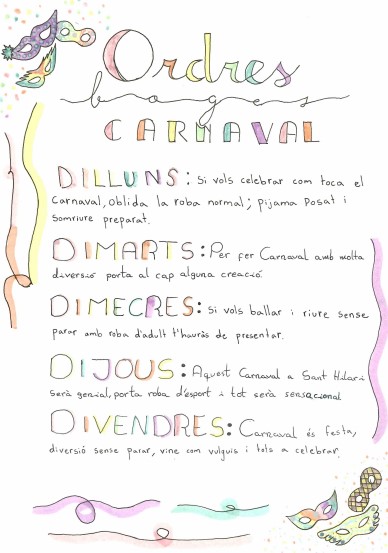 Ordres
boges
CARNAVAL
DILLUNS: Si vols celebrar com toca el
Carnaval, oblida la roba normal; pijama posat i
somriure preparat.
DIMARTS: Per fer Carnaval amb molta
diversió porta al cap alguna creació
DIMECRES: Si vols ballar i riure sense
parar amb roba d'adult t'hauràs de presentar.
DIJOUS: Aquest Carnaval a Sant Hilari
serà genial, porta roba d'esport i tot serà sensacional
DIVENDRES: Carnaval és festa,
diversió sense parar, vine com vulguis i tots a celebrar.